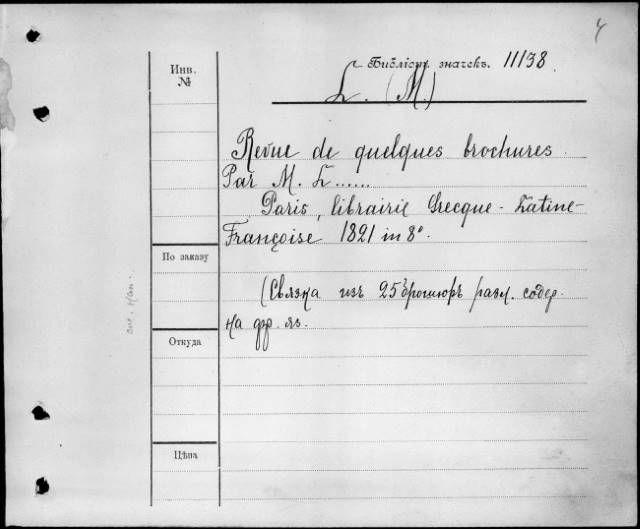 4
Инв.
№
Библіотр. значекъ. 11138
L. (M.)
Revue de quelques brochures.
Par M. L......
Paris, librairie Grecque-Latine-
Françoise 1821 in 8º.
По заказу
(Связка изъ 25 брошюръ разл. содер.
на фр. яз.
Откуда
Цѣна